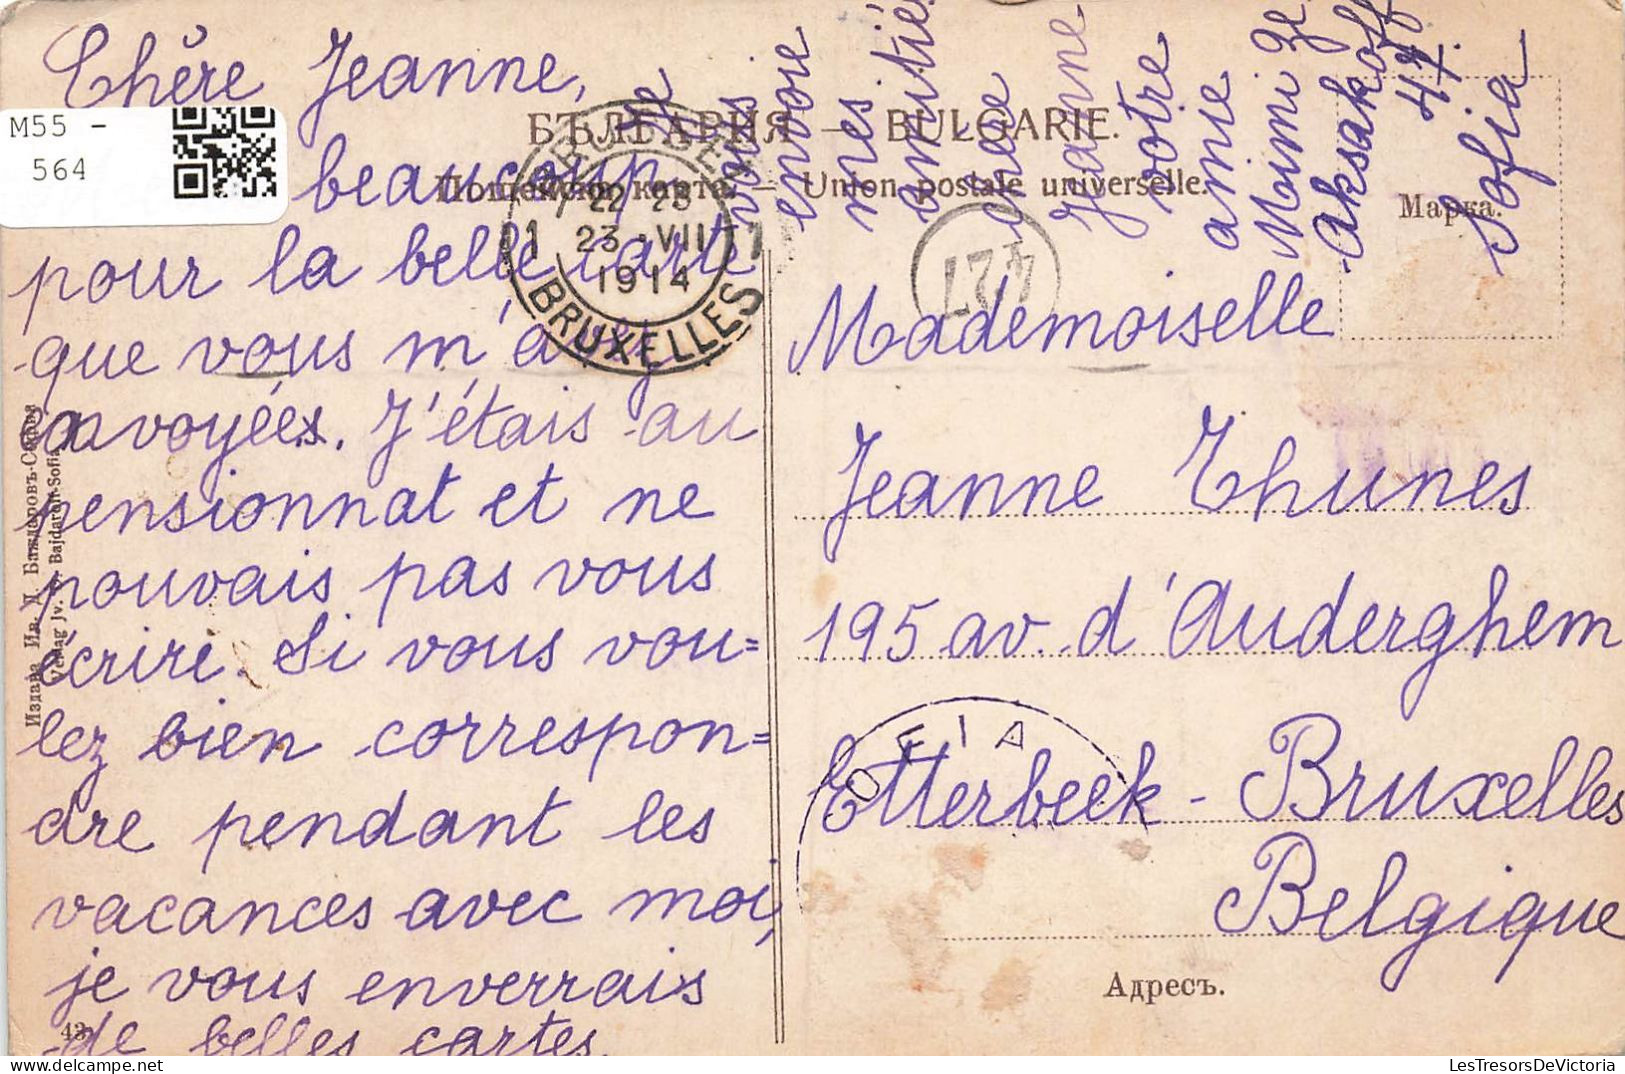 M55 -
564
БЪЛГАРИЯ — BULGARIE.
Пощенска карта. — Union postale universelle.
Марка.
BRUSSEL
1 22-23 1
23 VII
1914
BRUXELLES
Chère Jeanne,
beaucoup
pour la belle carte
que vous m'avez
envoyées. J'étais au
pensionnat et ne
pouvais pas vous
écrire. Si vous vou=
lez bien correspon=
dre pendant les
vacances avec moi,
je vous enverrais
de belles cartes.
Je
vous
envoie
mes
amitiés
chère
Jeanne
votre
amie
Mimi
Aksakoff
47
Sofia
Mademoiselle
Jeanne Thunes
195 av. d'Auderghem
Etterbeek - Bruxelles
Belgique
Адресъ.
OFIA
Издава Ив. Д. Баждаровъ-София
Verlag Jv. D. Bajdaroff-Sofia
43
LesTresorsDeVictoria